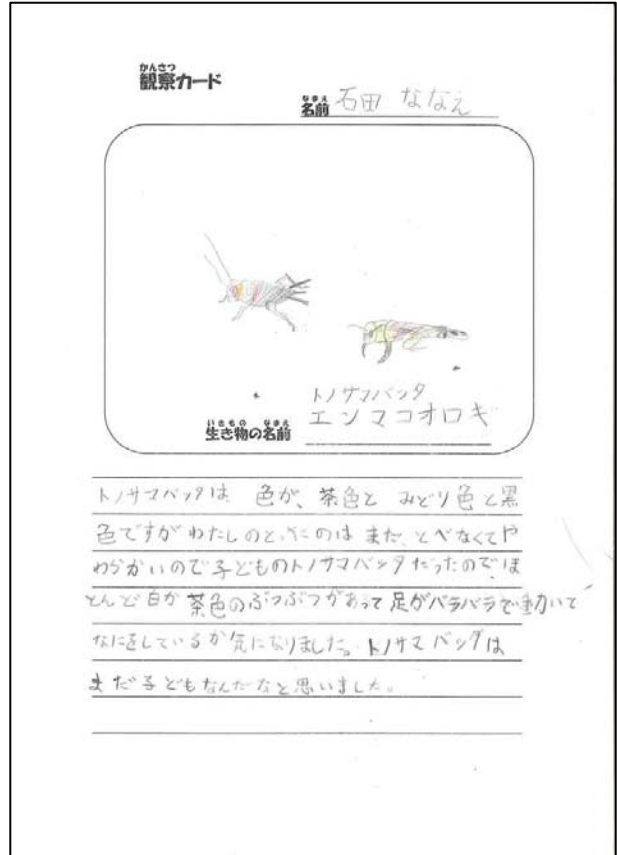 かんさつ
観察カード
なまえ
名前 石田 ななえ
トノサマバッタ
いきもの なまえ
生き物の名前 エンマコオロギ
トノサマバッタは 色が、茶色と みどり色と黒
色ですがわたしのとったのは まだ、とべなくてや
わらかいので子どものトノサマバッタだったのでほ
とんど白か 茶色のぶつぶつがあって足がバラバラで動いて
なにをしているか気になりました。トノサマバッタは
まだ子どもなんだなと思いました。